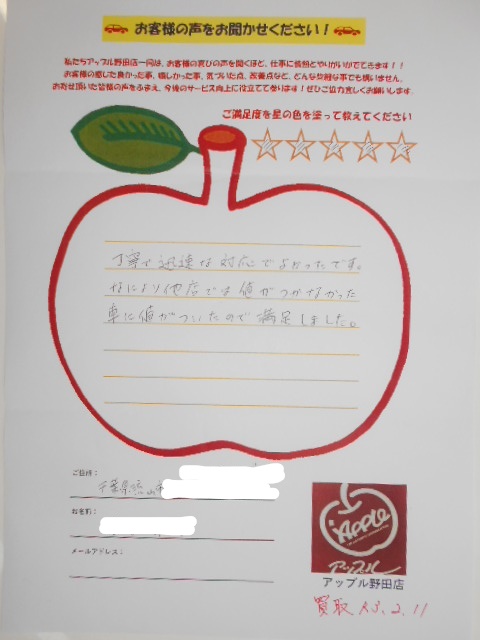 お客様の声をお聞かせください！
私たちアップル野田店一同は、お客様の喜びの声を聞くほど、仕事に情熱とやりがいがでてきます！！
お客様の感じた良かった事、嬉しかった事、気づいた点、改善点など、どんな些細な事でも構いません。
お寄せ頂いた皆様の声をふまえ、今後のサービス向上に役立てて参ります！ぜひご協力宜しくお願いします。
ご満足度を星の色を塗って教えてください
丁寧で迅速な対応でよかったです。
なにより他店では値がつかなかった
車に値がついたので満足しました。
ご住所：
千葉県流山市
お名前：
メールアドレス：
APPLE
アップル
アップル野田店
買取 R3.2.11